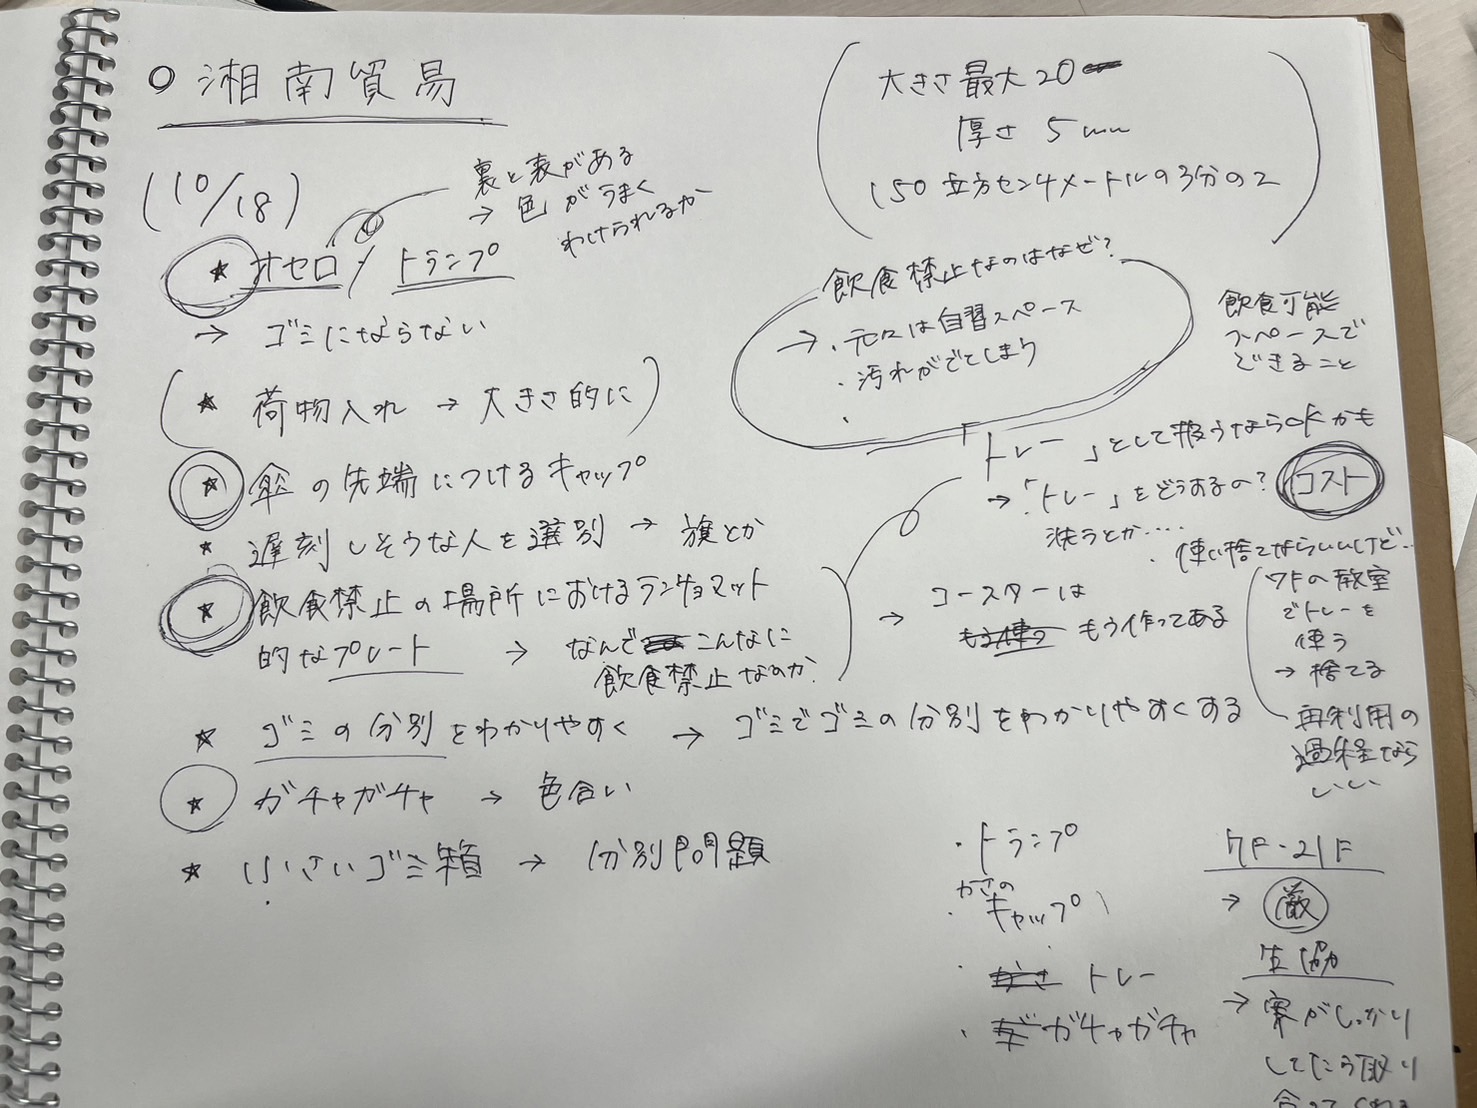 ○ 湘南貿易
(10/18)
裏と表がある
→ 色がうまく
わけられるか
★ オセロ / トランプ
→ ゴミにならない
(★ 荷物入れ → 大きさ的に)
★ 傘の先端につけるキャップ
★ 遅刻しそうな人を選別 → 旗とか
★ 飲食禁止の場所におけるランチョマット
的なプレート → なんでこんなに
飲食禁止なのか?
★ ゴミの分別をわかりやすく → ゴミでゴミの分別をわかりやすくする
★ ガチャガチャ → 色合い
★ 小さいゴミ箱 → 分別問題
大きさ最大20
厚さ 5mm
150立方センチメートルの3分の2
飲食禁止なのはなぜ?
→ ・元々は自習スペース
・汚れがでてしまう
・
飲食可能
スペースで
できること
「トレー」として扱うならOKかも
→「トレー」をどうするの? コスト
洗うとか…
・使い捨てならいいけど…
→ コースターは
もう作ってある
7Fの教室
でトレーを
使う
→ 捨てる
再利用の
過程なら
いい
・トランプ
かさの
・キャップ
・トレー
・ガチャガチャ
7F・21F
→ 厳
生協
→ 案がしっかり
してたら取り
合ってくれる